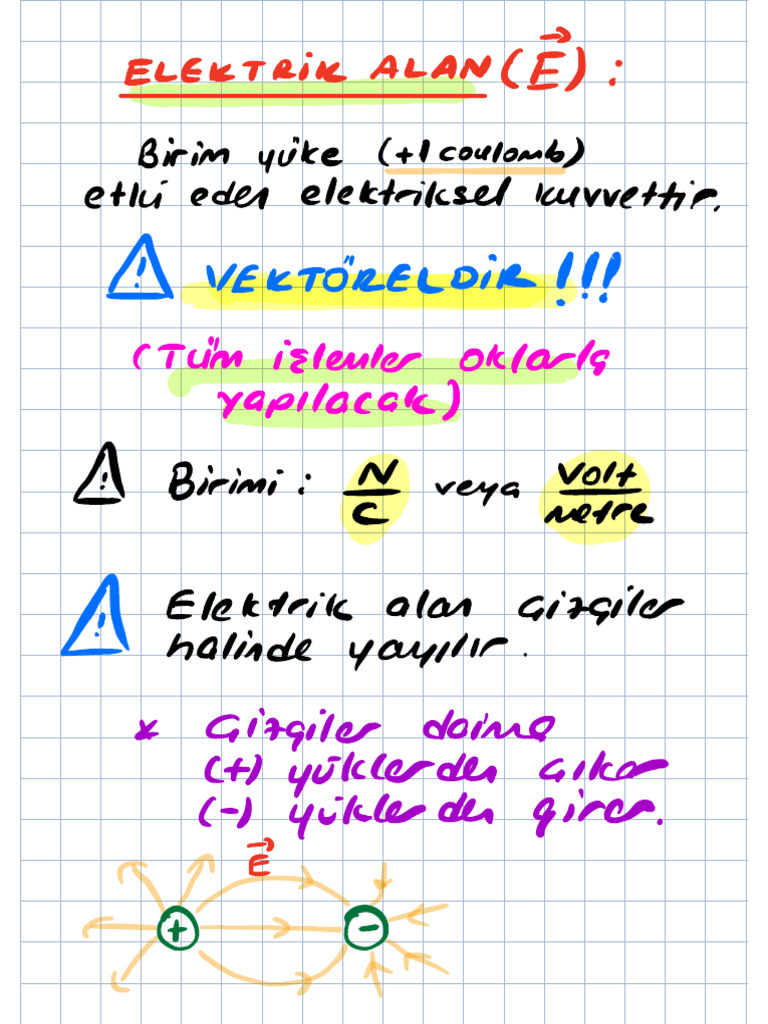 ELEKTRİK ALAN (E⃗) :
Birim yüke (+1 coulomb)
etki eden elektriksel kuvvettir.
! VEKTÖRELDİR !!!
(Tüm işlemler oklarla
yapılacak)
! Birimi : N/C veya Volt/metre
! Elektrik alan çizgiler
halinde yayılır.
* Çizgiler daima
(+) yüklerden çıkar
(-) yüklerden girer.
E⃗
+ -